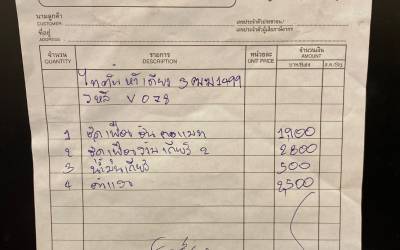 นามลูกค้า
CUSTOMER
เลขประจำตัวประชาชน/
เลขประจำตัวผู้เสียภาษีอากร
ที่อยู่
ADDRESS
จำนวน รายการ หน่วยละ จำนวนเงิน
QUANTITY DESCRIPTION UNIT PRICE AMOUNT
บาท/Baht ส.ต./Stg.
1499
V028
1 ชุดเฟือง 1,900
2 ชุดเฟือง เกียร์ 2 2800
3 น้ำมันเกียร์ 500
4 ค่าแรง 2,500